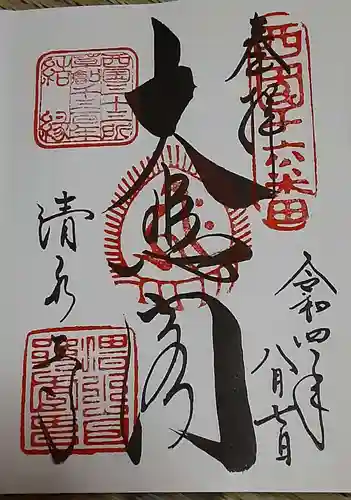 奉拝
西国十六番
大悲閣
西国三十三所
草創千三百年
結縁
清水寺
令和四年
八月七日